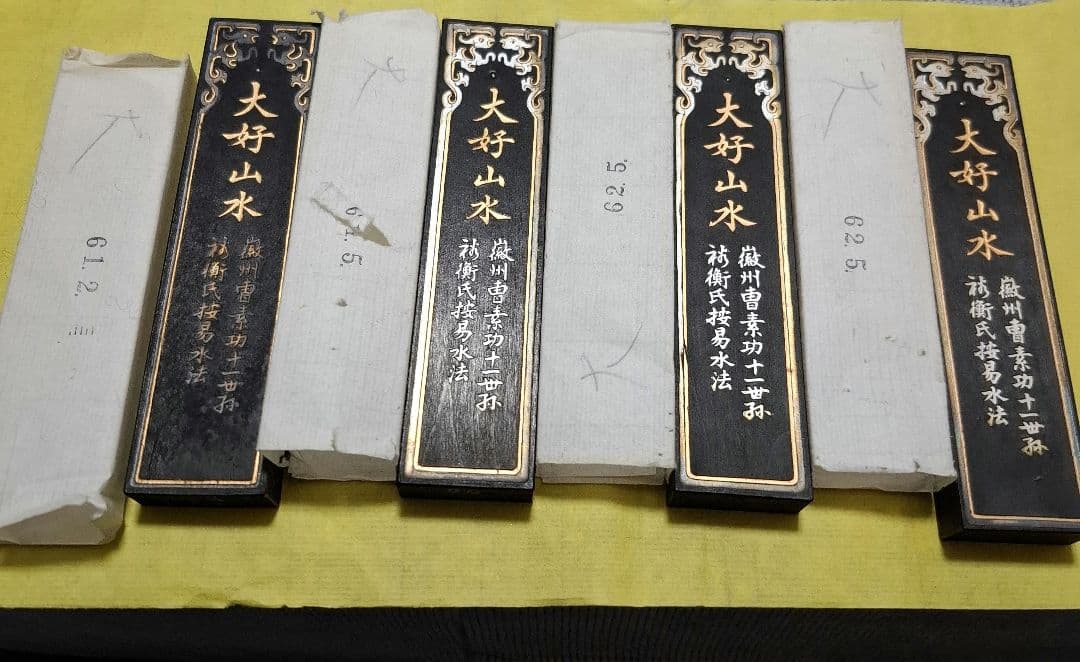 大
61.2.
三
大好山水
徽州曹素功十一世孙
裕衡氏按易水法
大
大好山水
徽州曹素功十一世孙
裕衡氏按易水法
62.5.
大
大好山水
徽州曹素功十一世孙
裕衡氏按易水法
大
62.5.
大好山水
徽州曹素功十一世孙
裕衡氏按易水法